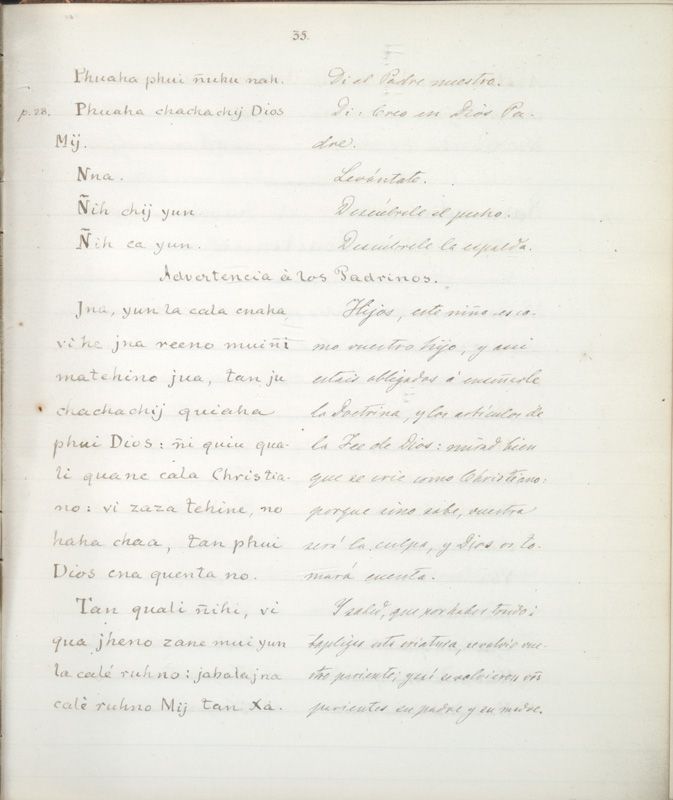 35.
Phuaha phui ñuhu nah.
Di el Padre nuestro.
p. 28. Phuaha chachachij Dios
Di: Creo en Dios Pa-
Mij.
dre.
Nna.
Levántate.
Ñih chij yun.
Descúbrele el pecho.
Ñih ca yun.
Descúbrele la espalda.
Advertencia à los Padrinos.
Jna, yun la cala cnaha
Hijos, este niño es co-
vi he jna reeno muiñi
mo vuestro hijo, y assi
matehino jua, tan ju
estais obligados á enseñarle
chachachij quiaha
la Doctrina, y los articulos de
phui Dios: ñi quiu qua-
la Fee de Dios: mirad bien
li quane cala Christia-
que se crie como Christiano:
no: vi zaza tehine, no
porque sino sabe, vuestra
haha chaa, tan phui
será la culpa, y Dios os to-
Dios cna quenta no.
mará cuenta.
Tan quali ñihi, vi
Y sabed, que por haber
qua jheno zane mui yun
esta criatura, se volvio vue-
la calé ruhno: jahala jna
tro pariente; y assi se volvieron
calè ruhno Mij tan Xa.
parientes su padre y su madre.